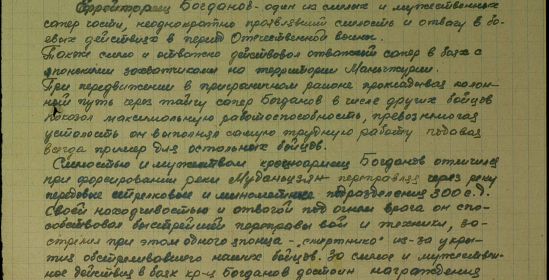 Ефрейтор Богданов - один из смелых и мужественных
сапер части, неоднократно проявлявший смелость и отвагу в бо-
евых действиях в период Отечественной войны.
Также смело и отважно действовал отважный сапер в боях с
японскими захватчиками на территории Маньчжурии.
При передвижении в приграничном районе прокладывая колон-
ный путь через тайгу сапер Богданов в числе других бойцов
показал максимальную работоспособность, превозмогая
усталость он выполнял самую трудную работу подавая
всегда пример для остальных бойцов.
Смелостью и мужеством красноармеец Богданов отличился
при форсировании реки Муданьцзян переправляя через реку
передовые стрелковые и минометные подразделения 300 с.д.
Своей находчивостью и отвагой под огнем врага он спо-
собствовал быстрейшей переправы вой и техники, за-
стрелил при этом одного японца - "смертника" из-за укры-
тия обстреливавшего наших бойцов. За смелое и мужествен-
ное действия в боях кр-ц Богданов достоин награждения